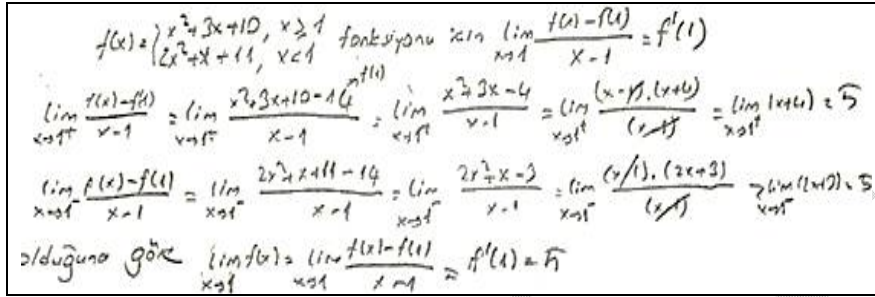 f(x) = { x²+3x+10, x≥1 ; 2x²+x+11, x<1 fonksiyonu için lim x→1 (f(x)-f(1))/(x-1) = f'(1)
lim x→1⁺ (f(x)-f(1))/(x-1) = lim x→1⁺ (x²+3x+10-14)/(x-1) →f(1) = lim x→1⁺ (x²+3x-4)/(x-1) = lim x→1⁺ ((x-1).(x+4))/(x-1) = lim x→1⁺ (x+4) = 5
lim x→1⁻ (f(x)-f(1))/(x-1) = lim x→1⁻ (2x²+x+11-14)/(x-1) = lim x→1⁻ (2x²+x-3)/(x-1) = lim x→1⁻ ((x-1).(2x+3))/(x-1) = lim x→1⁻ (2x+3) = 5
olduğuna göre lim x→1 f(x) = lim x→1 (f(x)-f(1))/(x-1) = f'(1) = 5